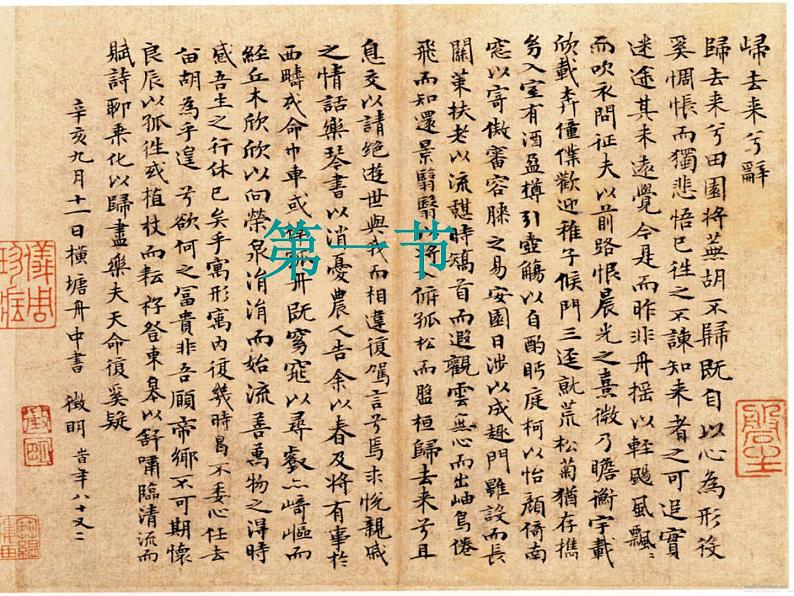 歸去来兮辭
歸去来兮田園将蕪胡不歸既自以心為形役
奚惆悵而獨悲悟已往之不諫知来者之可追實
迷途其未遠覺今是而昨非舟摇以輕颺風飄〻
而吹衣問征夫以前路恨晨光之熹微乃瞻衡宇載
欣載奔僮僕歡迎稚子候門三逕就荒松菊猶存攜
幼入室有酒盈樽引壺觴以自酌眄庭柯以怡顔倚南
窓以寄傲審容膝之易安園日涉以成趣門雖設而長
關策扶老以流憇時矯首而遐觀雲無心而出岫鳥倦
飛而知還景翳翳以将俯孤松而盤桓歸去来兮且
息交以請絶遊世與我而相違復駕言兮焉求悦親戚
之情話樂琴書以消憂農人告余以春及将有事於
西疇或命巾車或舟既窈窕以尋壑亦崎嶇而
經丘木欣欣以向榮泉涓涓而始流善萬物之得時
感吾生之行休已矣乎寓形寓内復幾時曷不委心任去
留胡為乎遑兮欲何之冨貴非吾願帝鄉不可期懷
良辰以孤徃或植杖而耘耔登東皋以舒嘯臨清流而
賦詩聊乘化以歸盡樂夫天命復奚疑
辛亥九月十一日横塘舟中書 徵明 旹年八十又二
第一节